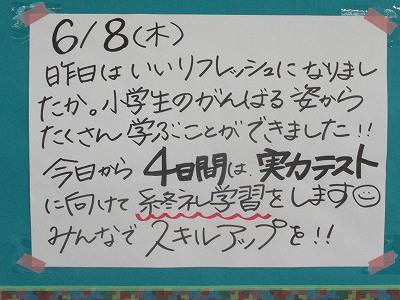 6/8(木)
昨日はいいリフレッシュになりまし
たか。小学生のがんばる姿から
たくさん学ぶことができました!!
今日から4日間は、実力テスト
に向けて終礼学習をします☺
みんなでスキルアップを!!